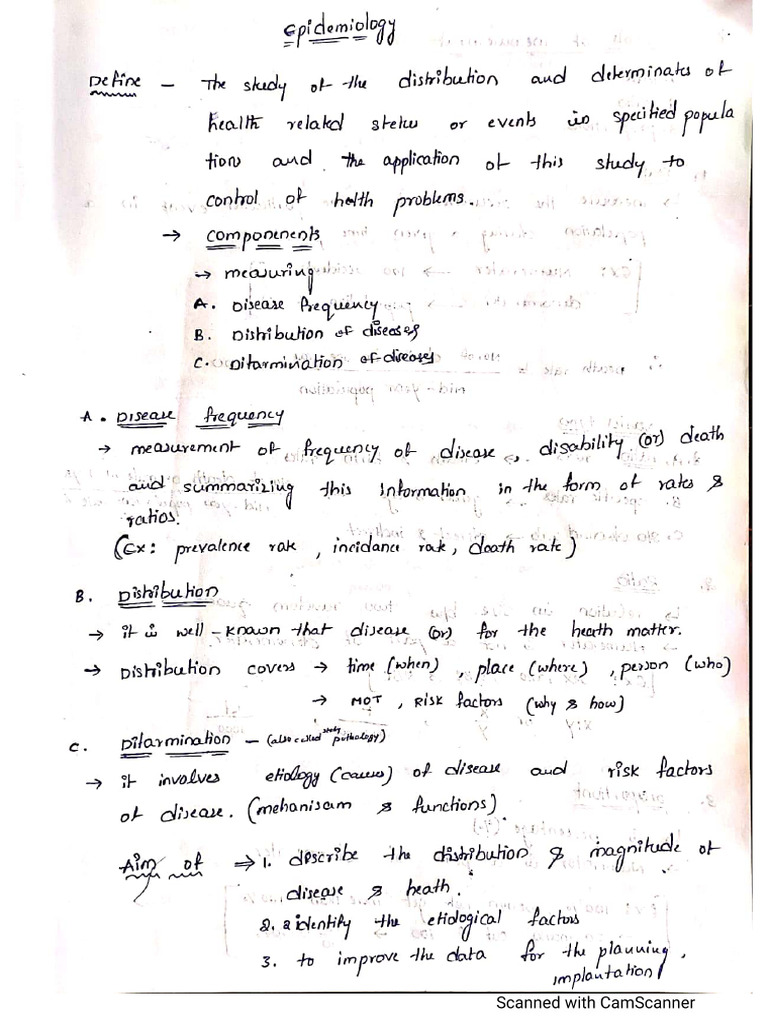 Epidemiology
Define – The study of the distribution and determinates of
health related states or events in specified popula
tion and the application of this study to
control of helth problems.
→ Componenents
→ measuring
A. Disease frequency
B. Distribution of diseases
C. Ditarmination of diseases
A. Disease frequency
→ measurement of frequency of disease, disability (or) death
and summarizing this information in the form of rates &
ratios.
(Ex: prevalence rate, incidance rate, death rate)
B. Distribution
→ it is well-known that disease (or) for the heath matter.
→ Distribution covers → time (when), place (where), person (who)
→ MOT, Risk factors (why & how)
C. Ditarmination – (also called study pathology)
→ it involves etiology (causes) of disease and risk factors
of disease. (mehanisam & functions)
Aim of ⇒ 1. describe the distribution & magnitude of
disease & heath.
2. identify the etiological factors
3. to improve the data for the planning,
implantation
Scanned with CamScanner